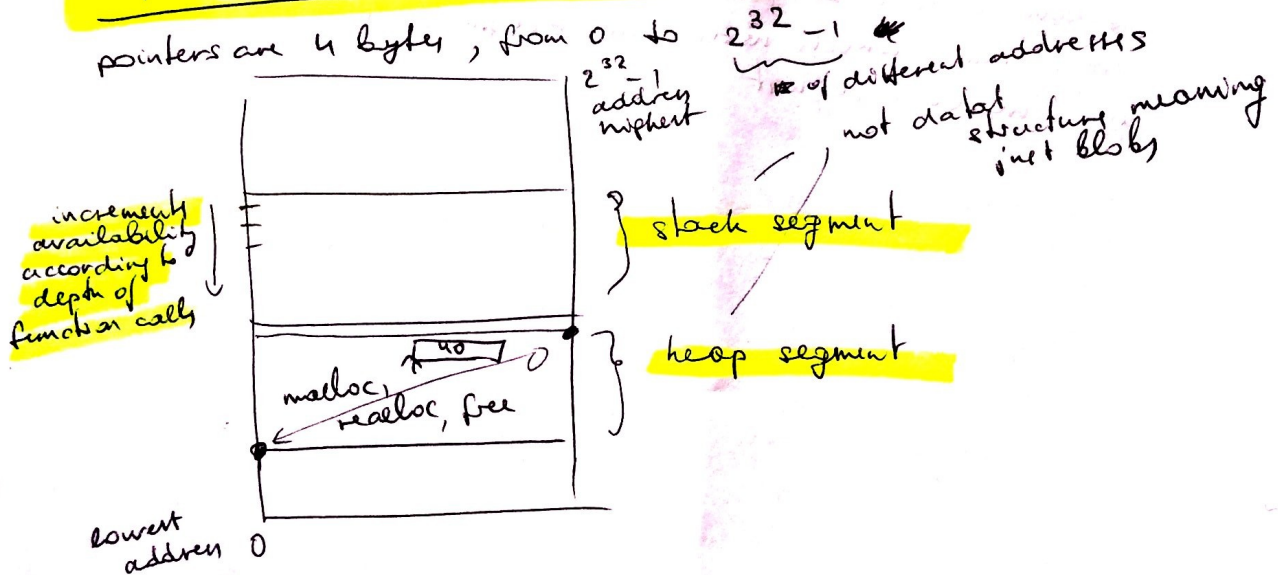 pointers are 4 bytes, from 0 to 2^32 - 1
# of different addresses
2^32 - 1
address
highest
not data
structure meaning
just blobs
increments
availability
according to
depth of
function calls
stack segment
40
heap segment
malloc,
realloc, free
lowest
address 0